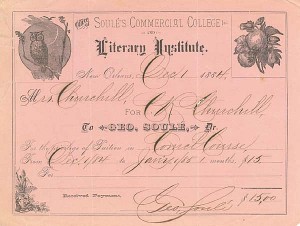 SOULÉ'S COMMERCIAL COLLEGE
AND
Literary Institute.
New Orleans, Dec 1 1884
Mrs. Churchill,
FOR C K Churchill,
To GEO. SOULÉ, Dr.
For the of Tuition in Course
From Dec. 1/84 to Jany 1/85 1 months $15
To
Received Payment, $15,00
Geo. Soulé